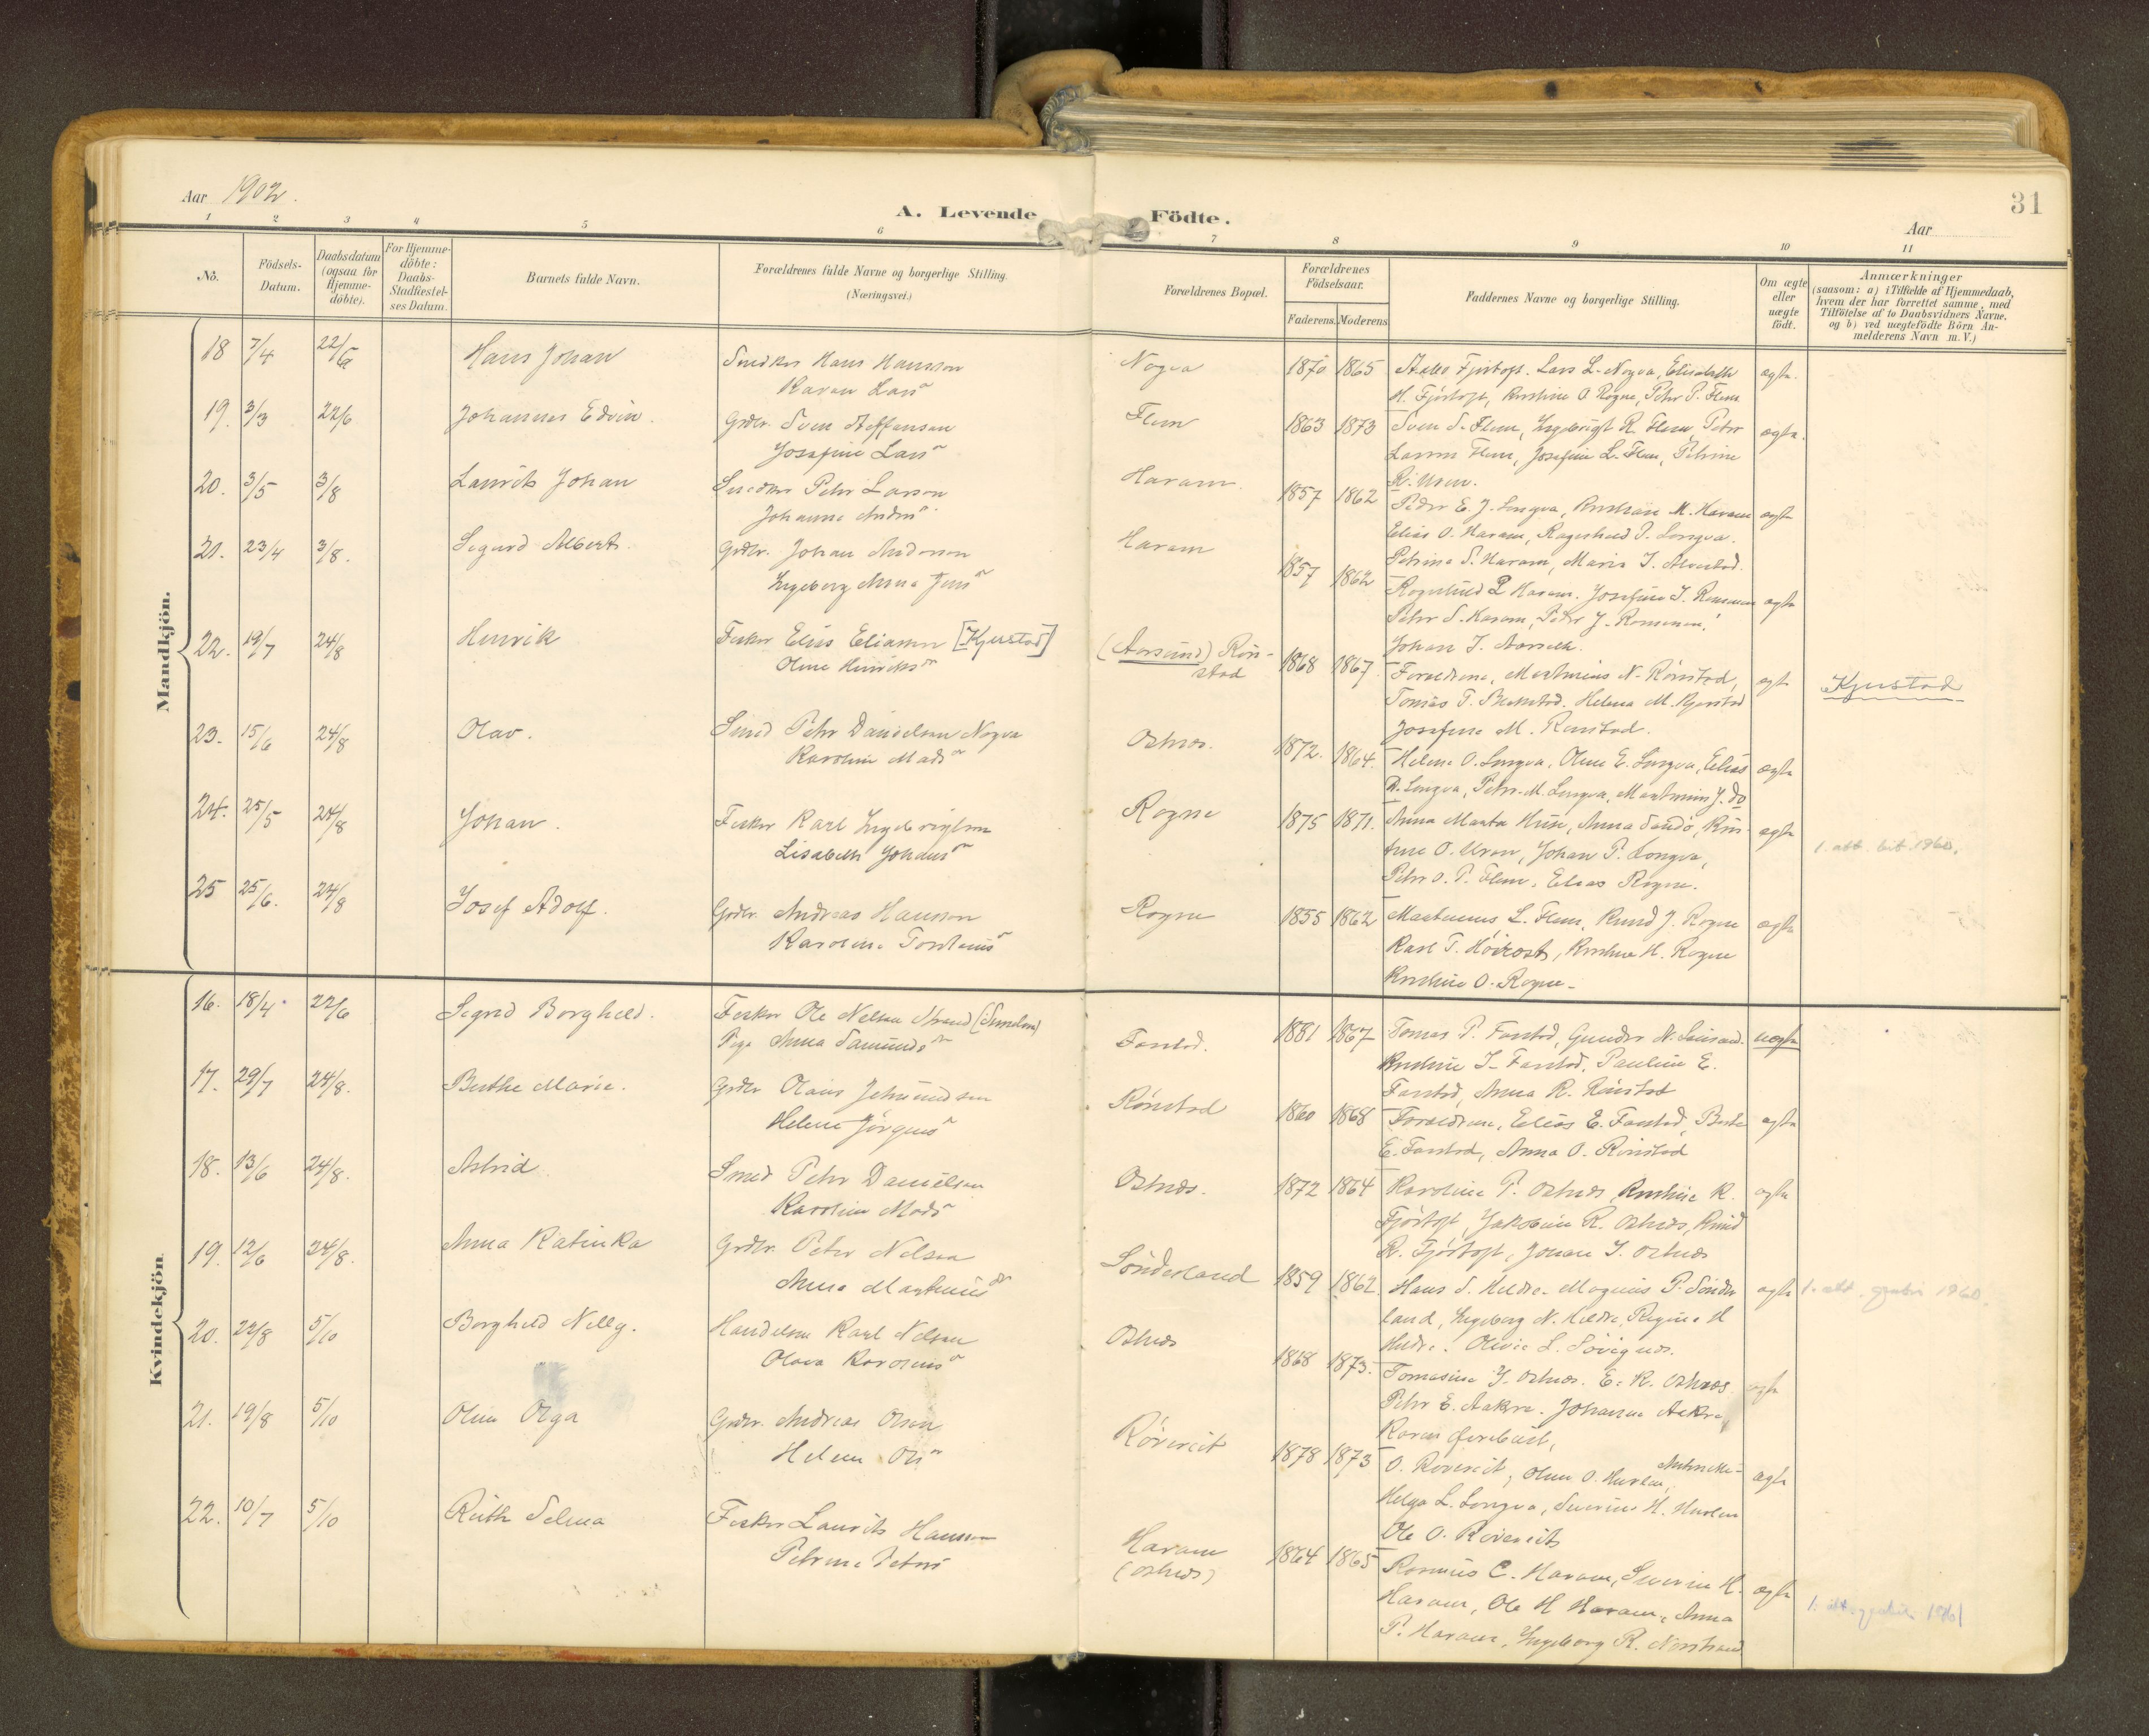 Aar 1902.
A. Levende Födte.
31
Aar
1 2 3 4 5 6 7 8 9 10 11
No.
Födsels-Datum.
Daabsdatum (ogsaa for Hjemme-döbte).
For Hjemme-döbte: Daabs-Stadfæstel-ses Datum.
Barnets fulde Navn.
Forældrenes fulde Navne og borgerlige Stilling. (Næringsvei.)
Forældrenes Bopæl.
Forældrenes Födselsaar.
Faderens. Moderens
Faddernes Navne og borgerlige Stilling.
Om ægte eller uægte födt.
Anmærkninger
(saasom: a) i Tilfælde af Hjemmedaab, hvem der har forrettet samme, med Tilföielse af to Daabsvidners Navne, og b) ved uægtefödte Börn An-melderens Navn m. V.)
Mandkjön.
18 7/4 22/6 Hans Johan Snedker Hans Hansson Nogva 1870 1865 Lars L. Nogva, Elisabeth ægte.
Karen Lars H. Fjörtoft, Kristine O Rogne, Petr P. Flem
19. 3/3 22/6 Johannes Edvin. Grdbr. Sven Steffensen Flem 1863 1873 Sven S. Flem, Ingebrigt R. Flem Peter ægte.
Josefine Lars Larsen Flem, Josefine L. Flem, Petrine
20. 3/5 3/8 Laurits Johan Snedker Petr Larsen Haram. 1857 1862 R. Uren.
Johanne Anders Peder E. J. Longva, Kristiane M. Haram ægte
Elias O. Haram, Ragnhild P. Longva.
21. 23/4 3/8. Sigurd Albert. Grdbr. Johan Anderson Haram 1857 1862 Petrine S. Haram, Maris J. Alvestad.
Ingeborg Anna Jens Ragnhild P Haram. Josefine J. ægte
Petr S. Haram, Peder J.
22. 19/7 24/8 Henrik Fisker Elias Eliassen [Kjerstad] (Aarsund) Rön-stad 1868 1867. Johan J.
Oline Henriks Forældrene, Martinius N. Rönstad, ægt Kjerstad
Tomas T. Helena M. Kjerstad
23. 15/6 24/8 Olav. Smed Petr Danielsen Nogva Ostnes. 1872. 1864. Josefine M. Rönstad.
Karoline Mads Helene O. Longva, Oline E. Longva, Elias ægte
R. Longva, Petr. M. Longva, Martinius J. do
24. 25/5 24/8 Johan. Fisker Karl Ingebrigtsen Rogne 1875 1871. Anna Marta Huse, Anna Sandö, Kris- ægte 1. att. bit. 1960.
Lisabeth Johans tine O. Uren, Johan P. Longva,
Petr O. P. Flem, Elias Rogne.
25 25/6. 24/8 Josef Adolf. Grdbr. Andreas Hansson Rogne 1855 1862 Martinus L. Flem, Knud J. Rogne ægte
Karoline Torsteins Karl T. Kristine H. Rogne
Kristine O. Rogne.
Kvindekjön
16. 18/4 22/6 Sigrid Borghild. Fisker Ole Nelsen Strand Farstad. 1881 1867 Tomas P. Farstad, Gunder N. uægte
Pige Anna Samunds Kristine I. Farstad, Pauline E.
Farstad, Anna R. Rönstad
17. 29/7 24/8. Berthe Marie. Grdbr Olaus Rönstad 1860 1868 Forældrene, Elias E. Farstad, Berte ægte
Helene Jörgens E. Farstad, Anna O. Rönstad
18. 13/6 24/8. Astrid Smed Petr Danielsen Ostnes. 1872 1864 Karoline P. Ostnes Kristine K. ægte
Karoline Mads Fjörtoft, Jakobine R. Ostnes, Knud
R. Fjörtoft, Johan J. Ostnes
19. 12/6 24/8. Anna Katinka Grdbr. Peter Nelsen Sönderland 1859 1862. Hans S. Hildre. Magnus P. Sönder ægte 1. att. 1960.
Anna Martinus land, Ingeborg N. Hildre, Regine H
Hildre. Olivie L. Sövignes.
20. 22/8 5/10 Borghild Nelly. Handelsm Karl Nelsen Ostnes 1868 1873. Tomasine J. Ostnes. E. K. Ostnes ægte
Olava Karolius Petr E. Aakre. Johanna Aakre,
Karen
21. 19/8 5/10 Oline Olga Grdbr. Andreas Olsen Rövereit 1878 1873 O. Rövereit, Oline O. Hurlen, ægte
Helene Ols Helga L. Longva, Severine H. Hurlen
Ole O. Rövereit
22. 10/7 5/10 Ruth Selma Fisker Laurits Hansen Haram 1864 1865 Rasmus C. Haram, Severin H. ægte 1961
Petrine Peters (Ostnes) Haram, Ole H Haram, Anna
P. Haram, Ingeborg R. Nordstrand